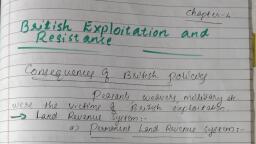 Chapter-4
British Exploitation and
Resistance
Consequences of British policies
Peasants weavers, military etc
were the victims of British exploitation.
→ Land Revenue System:-
a) Permanent Land Revenue System:-